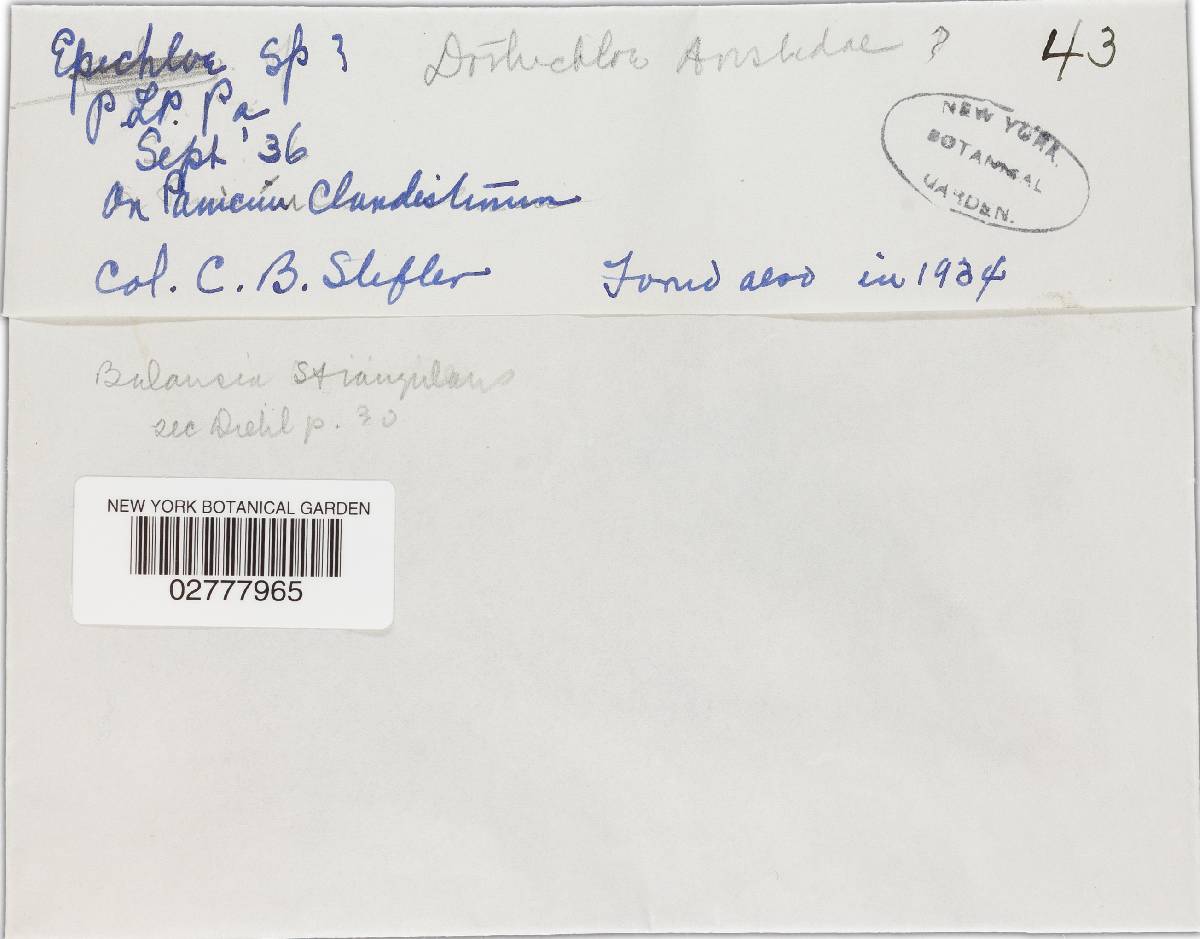 Epichloe Sp ? Dothichloe Aristidae ? 43
P. Lp. Pa
Sept '36
On Panicum Clandestinum
Col. C. B. Stifler Found also in 1934
NEW YORK
BOTANICAL
GARDEN.
Balansia strangulans
sec Diehl p. 30
NEW YORK BOTANICAL GARDEN
02777965